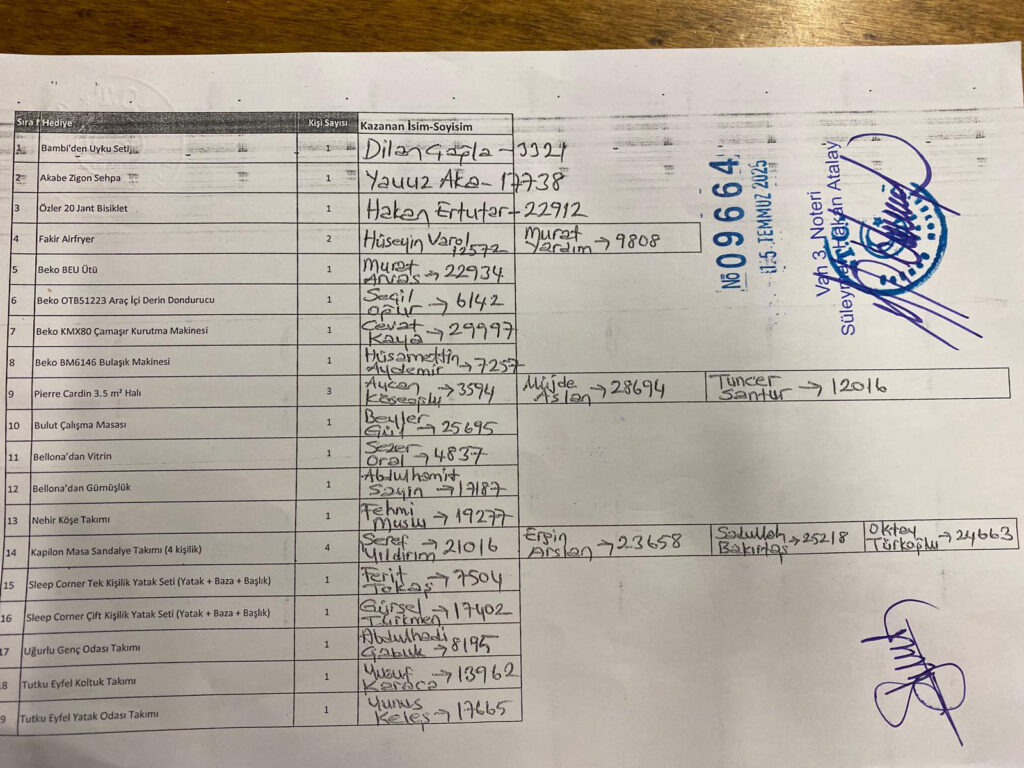 Sıra Hediye Kişi Sayısı Kazanan İsim-Soyisim
1 Bambi'den Uyku Seti 1 Dilan Çağla - 3321
2 Akabe Zigon Sehpa 1 Yavuz Aka - 17738
3 Özler 20 Jant Bisiklet 1 Hakan Ertutar - 22912
4 Fakir Airfryer 2 Hüseyin Varol 12572 Murat Yardım → 9808
5 Beko BEU Ütü 1 Murat → 22934
6 Beko OTB51223 Araç İçi Derin Dondurucu 1 Seçil → 6142
7 Beko KMX80 Çamaşır Kurutma Makinesi 1 Cevat Kaya → 29997
8 Beko BM6146 Bulaşık Makinesi 1 Hüsamettin Aydemir → 7257
9 Pierre Cardin 3.5 m² Halı 3 Aycan Köseoğlu → 3594 Müjde Aslan → 28694 Tuncer Santur → 12016
10 Bulut Çalışma Masası 1 Beyler Gül → 25695
11 Bellona'dan Vitrin 1 Sezer Oral → 4837
12 Bellona'dan Gümüşlük 1 Abdulhamit Sayın → 17187
13 Nehir Köşe Takımı 1 Fehmi Muslu → 19277
14 Kapilon Masa Sandalye Takımı (4 kişilik) 4 Şeref Yıldırım → 21016 Ergin Arslan → 23658 Sadullah Bakırtaş → 25218 Oktay Türkoğlu → 24663
15 Sleep Corner Tek Kişilik Yatak Seti (Yatak + Baza + Başlık) 1 Ferit Tokaş → 7504
16 Sleep Corner Çift Kişilik Yatak Seti (Yatak + Baza + Başlık) 1 Gürsel Türkmen → 17402
17 Uğurlu Genç Odası Takımı 1 Abdulhadi Çabuk → 8195
8 Tutku Eyfel Koltuk Takımı 1 Yusuf Karaca → 13962
9 Tutku Eyfel Yatak Odası Takımı 1 Yunus Keleş → 17665
No 09664
05 TEMMUZ 2025
Van 3. Noteri
Süleyman Hakan Atalay